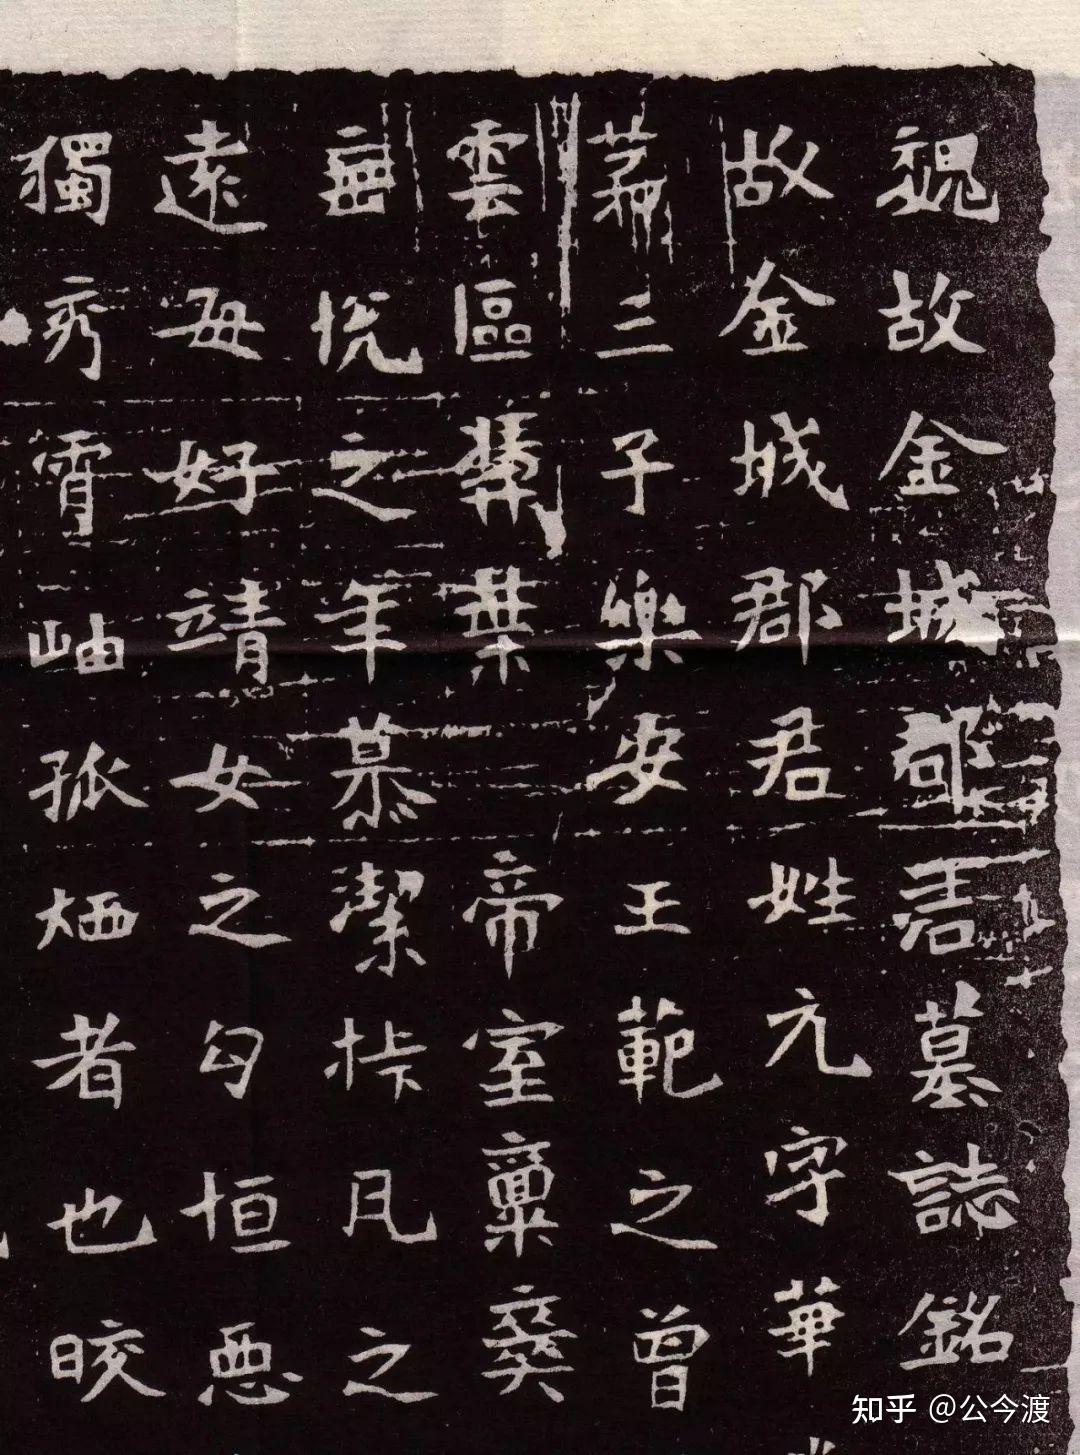 魏故金城郡君墓誌銘
故金城郡君姓元字華
苐三子樂安王範之曾
雲區葉帝室稟彝
悅之年慕潔凡之
遠每好靖女之句恒惡
獨秀霄岫孤栖者也晈
知乎 @公今渡